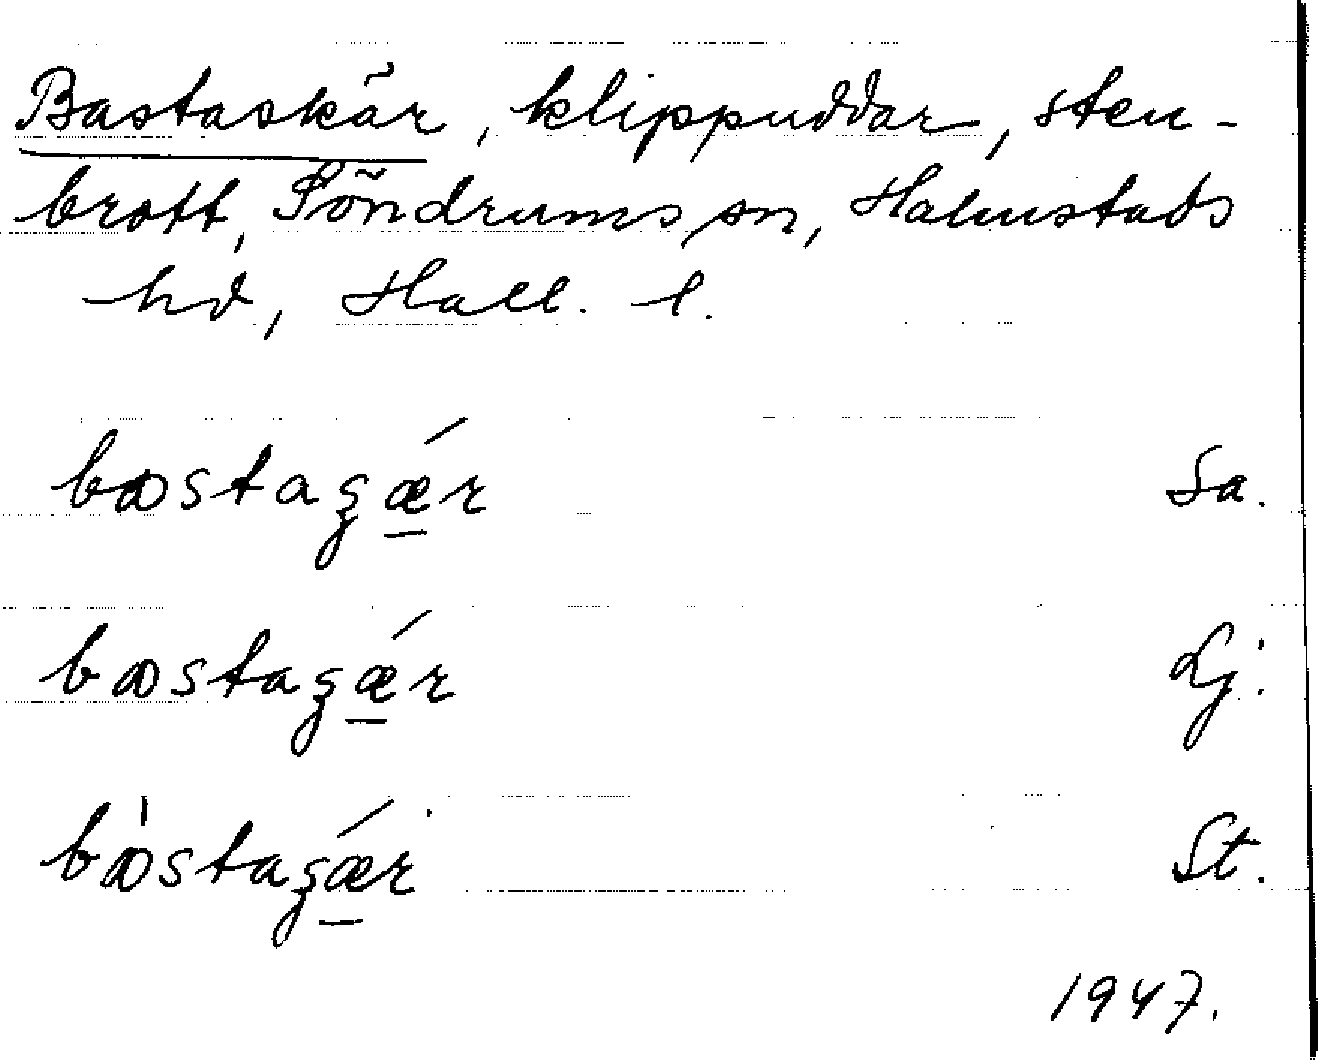 Bastaskär, klippuddar, sten-
brott, Söndrums sn, Halmstads
hd, Hall. l.
bɷstaʒǽ̱r Sa.
bɷstaʒǽ̱r Lj.
bɷ̍staʒǽ̱r St.
1947.